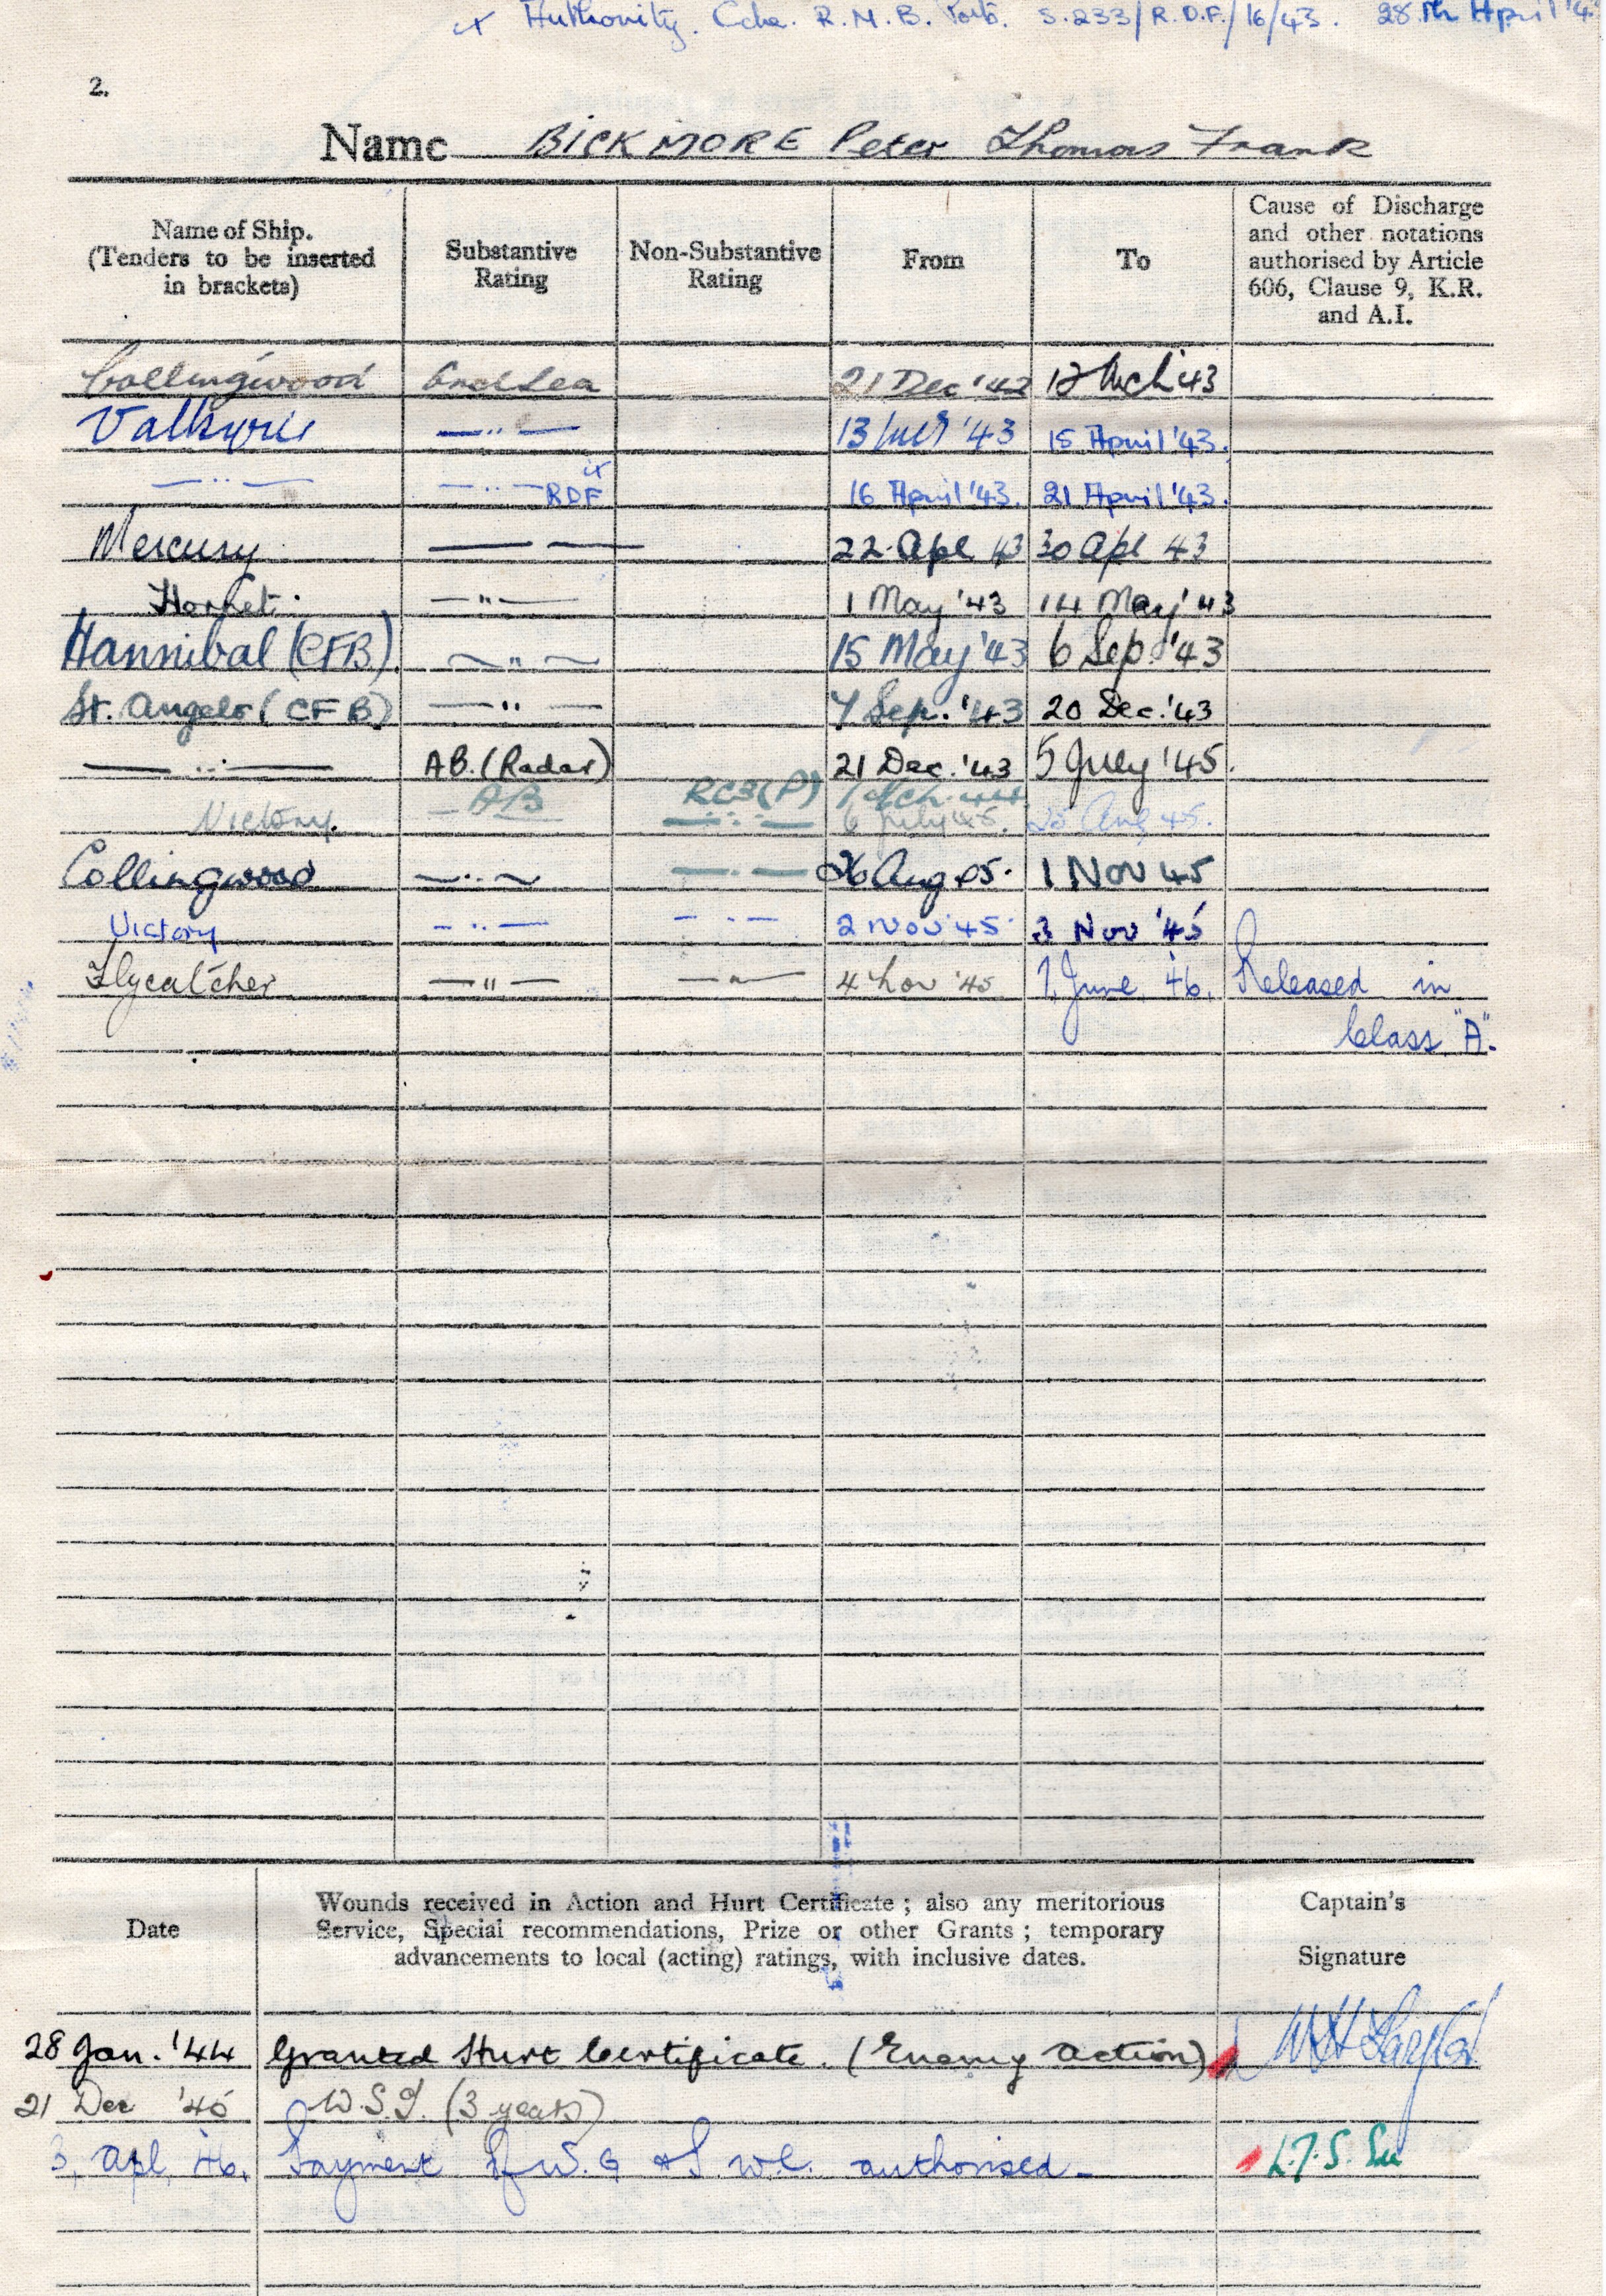 x Authority. Cdre. R.N.B. Ports. S.233/R.D.F./16/43. 28th April '4
2.
Name BICKMORE Peter Thomas Frank
Name of Ship. (Tenders to be inserted in brackets) Substantive Rating Non-Substantive Rating From To Cause of Discharge and other notations authorised by Article 606, Clause 9, K.R. and A.I.
Collingwood Ord Sea 21 Dec '42 12 Mch '43
Valkyrie —„— 13 '43 15 April '43.
—„— —„— RDF x 16 April '43. 21 April '43.
Mercury —— 22 Apl 43 30 Apl 43
Hornet. —"— 1 May '43 14 May '43
Hannibal (CFB) —"— 15 May '43 6 Sep. '43
St. Angelo (CFB) —"— 7 Sep. '43 20 Dec. '43
—„— AB. (Radar) 21 Dec. '43 5 July '45.
AB RC3(P) 1 Mch. 44
Victory. —„— 6 July 45. 25 Aug 45.
Collingwood —„— —„— 26 Aug 45. 1 Nov 45
Victory —„— —„— 2 Nov '45 3 Nov '45
Flycatcher —"— —"— 4 Nov '45 1. June. 46. Released in
Class "A".
Date Wounds received in Action and Hurt Certificate ; also any meritorious Service, Special recommendations, Prize or other Grants ; temporary advancements to local (acting) ratings, with inclusive dates. Captain's Signature
28 Jan. '44 Granted Hurt Certificate. (Enemy Action)
21 Dec '45 W.S.I. (3 years)
3. Apl. 46. Payment of W.G & P.W.C. authorised.